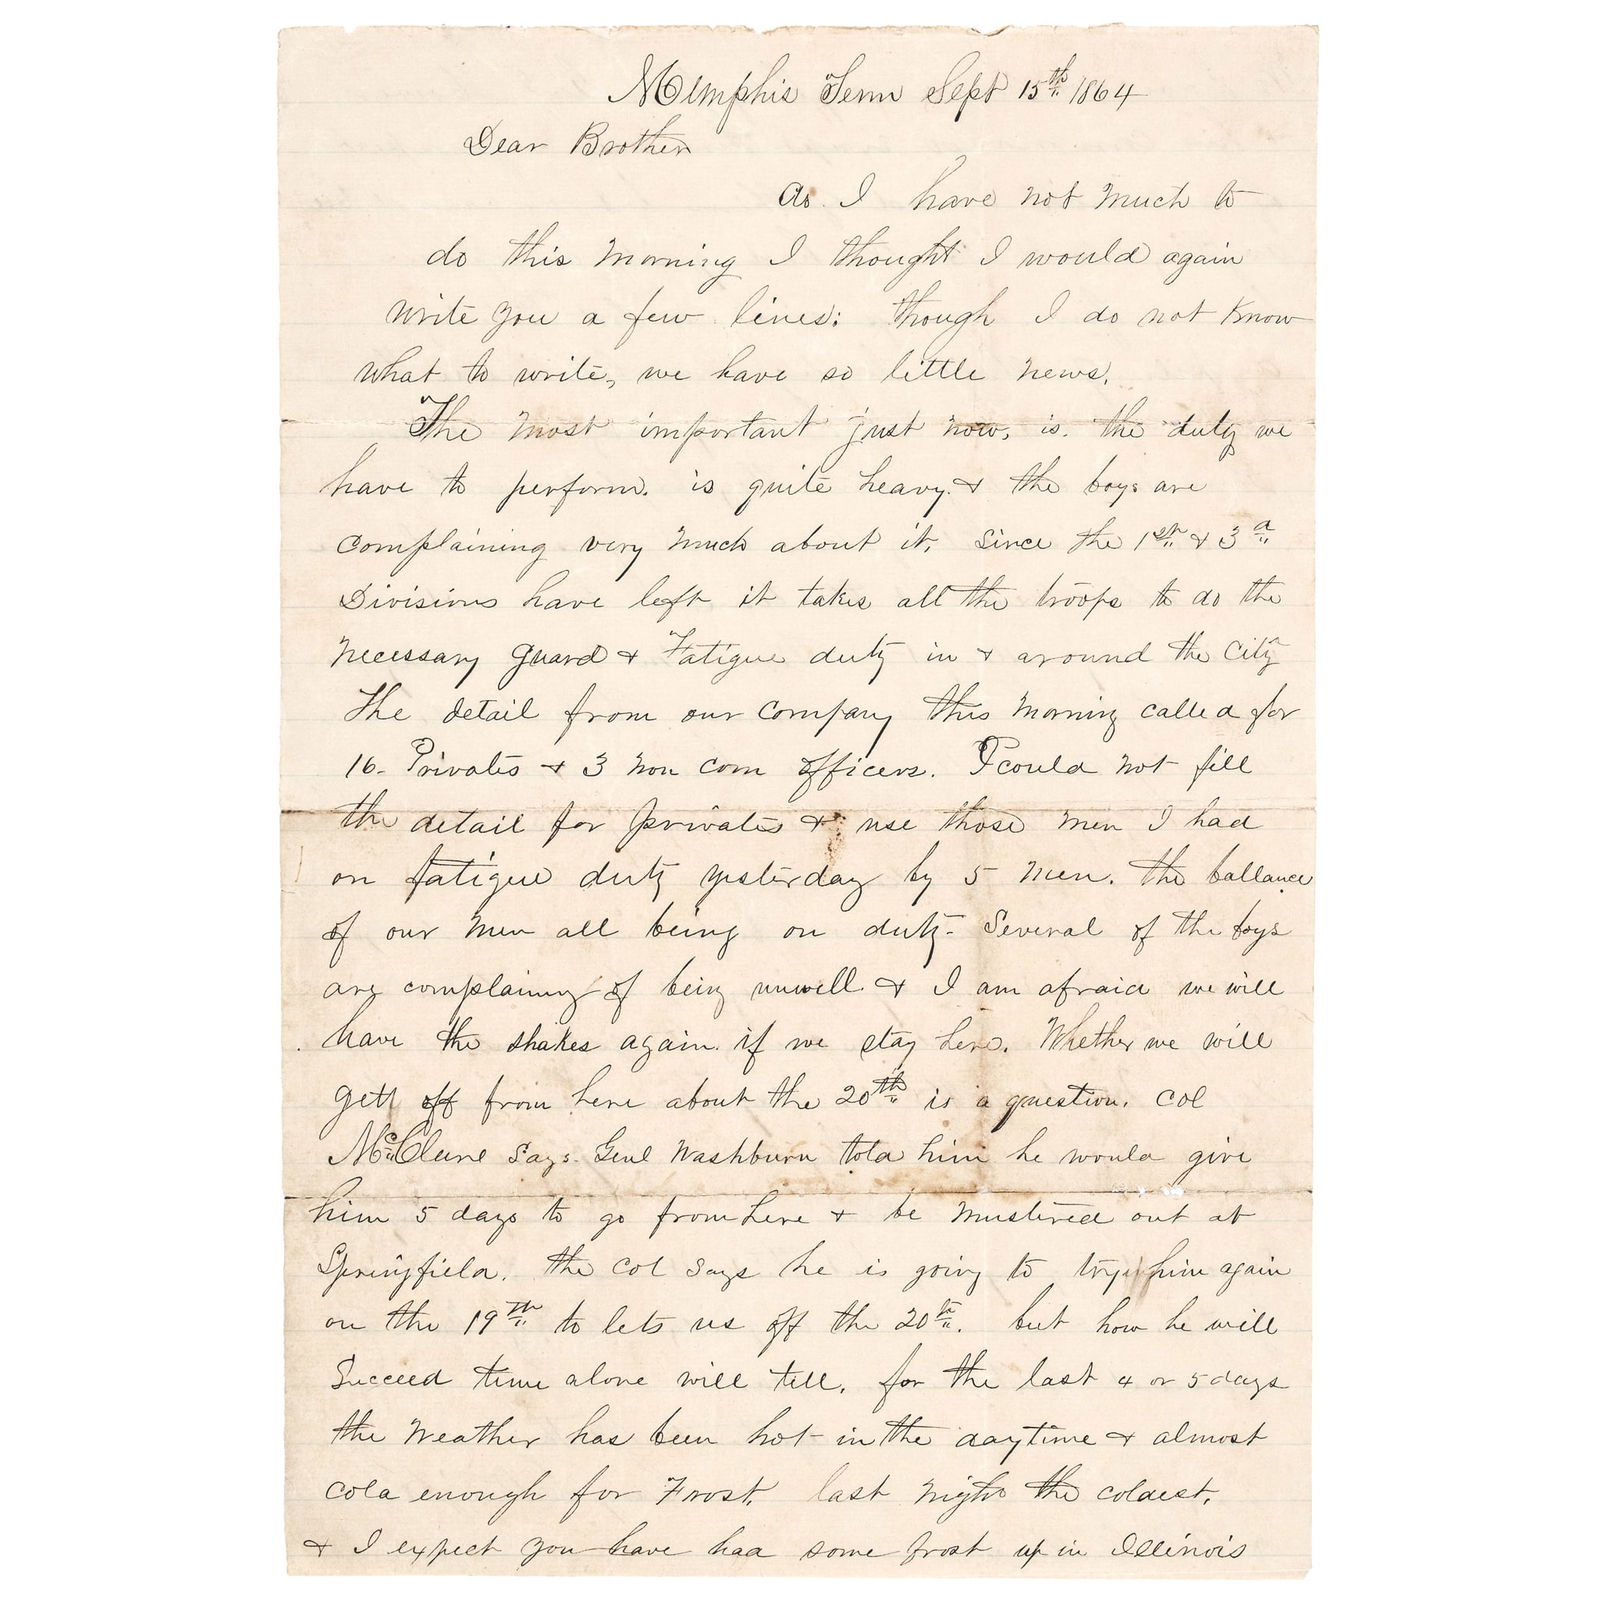 Memphis Tenn Sept 15th 1864
Dear Brother
As I have not much to
do this morning I thought I would again
write you a few lines: though I do not know
what to write, we have so little news.
The most important just now, is. the duty we
have to perform. is quite heavy. & the boys are
complaining very much about it, since the 1st & 3d
Divisions have left it takes all the troops to do the
necessary guard & Fatigue duty in & around the City
The detail from our company this morning called for
16- Privates & 3 non com officers. I could not fill
the detail for privates & use those men I had
on fatigue duty yesterday by 5 men. the ballance
of our men all being on duty- Several of the boys
are complaining of being unwell & I am afraid we will
have the shakes again. if we stay here. Whether we will
gett off from here about the 20th is a question. Col
McClure says. Genl Washburn told him he would give
him 5 days to go from here & be mustered out at
Springfield. the Col says he is going to try him again
on the 19th to lets us off the 20th. but how he will
succeed time alone will tell. for the last 4 or 5 days
the weather has been hot in the daytime & almost
cold enough for Frost, last night the coldest,
& I expect you have had some frost up in Illinois